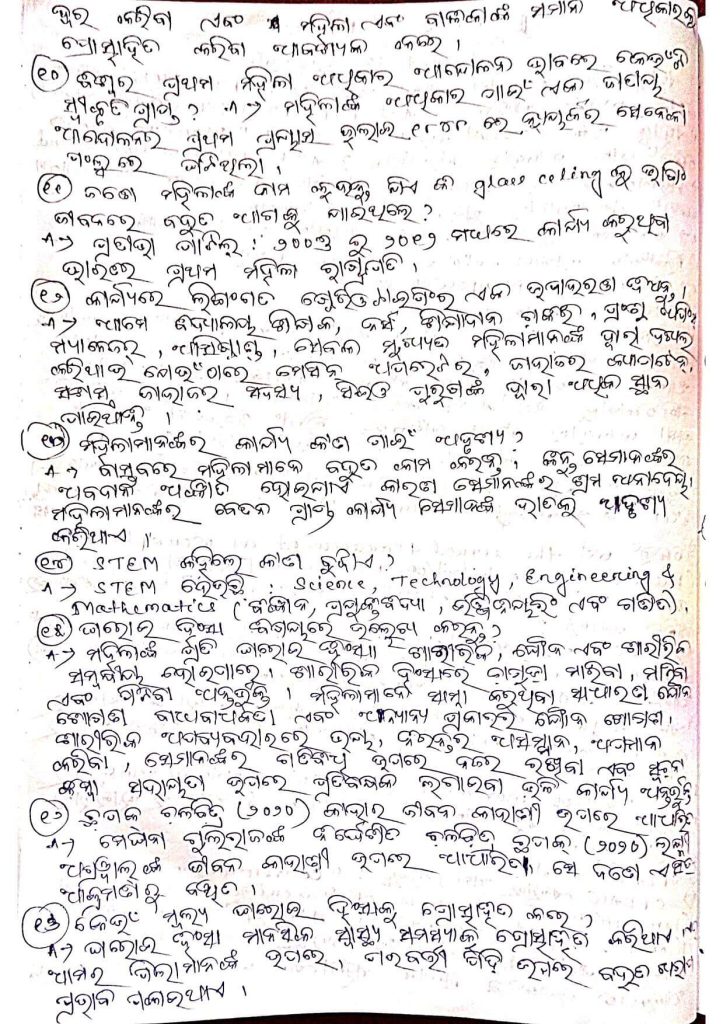 ଦୂର କରିବା ଏବଂ ମହିଳା ଏବଂ ବାଳିକାଙ୍କ ସମାନ ଅଧିକାରକୁ
ପ୍ରୋତ୍ସାହିତ କରିବା ଆବଶ୍ୟକ କରେ ।
୧୦ ବିଶ୍ୱର ପ୍ରଥମ ମହିଳା ଅଧିକାର ଆନ୍ଦୋଳନ ଭାବରେ କେଉଁଟି
ସ୍ୱୀକୃତି ପ୍ରାପ୍ତ ? A → ମହିଳାଙ୍କ ଅଧିକାର ପାଇଁ ଏକ ଜାତୀୟ
ଆନ୍ଦୋଳନର ପ୍ରଥମ ପ୍ରୟାସ ଜୁଲାଇ ୧୮୪୮ ରେ ନ୍ୟୁୟର୍କର ସେନେକା
ଫଲ୍ସ ରେ ଘଟିଥିଲା ।
୧୧ ଜଣେ ମହିଳାଙ୍କ ନାମ କୁହନ୍ତୁ ଯିଏ କି glass celing କୁ ଭାଙ୍ଗି
ଜୀବନରେ ବହୁତ ଆଗକୁ ଯାଇଥିଲେ ?
A → ପ୍ରତିଭା ପାଟିଲ୍ : ୨୦୦୭ ରୁ ୨୦୧୨ ମଧ୍ୟରେ କାର୍ଯ୍ୟ କରୁଥିବା
ଭାରତର ପ୍ରଥମ ମହିଳା ରାଷ୍ଟ୍ରପତି ।
୧୨ କାର୍ଯ୍ୟରେ ଲିଙ୍ଗଗତ ଷ୍ଟେରିଓଟାଇପିଂର ଏକ ଉଦାହରଣ ଦିଅନ୍ତୁ ।
A → ଆମେ ବିଦ୍ୟାଳୟ ଶିକ୍ଷକ, ନର୍ସ,
ମ୍ୟାନେଜର, ମୁଖ୍ୟତଃ ମହିଳାମାନଙ୍କ ଦ୍ୱାରା
କରିଥାଇ ଯେଉଁଠାରେ ମେସିନ ଅପରେଟର, ଜାହାଜର କ୍ୟାପଟେନ୍,
ଜାହାଜର ସଦସ୍ୟ, ପୁରୁଷଙ୍କ ଦ୍ୱାରା ଅଧିକ ସ୍ଥାନ
ପାଇଥାନ୍ତି ।
୧୩ ମହିଳାମାନଙ୍କର କାର୍ଯ୍ୟ କାହିଁ ପାଇଁ ଅଦୃଶ୍ୟ ?
A → ବାସ୍ତବରେ ମହିଳାମାନେ ବହୁତ କାମ କରନ୍ତି । କିନ୍ତୁ ସେମାନଙ୍କର
ଅବଦାନ ହୋଇନାଏ କାରଣ ସେମାନଙ୍କର ଶ୍ରମ ଅନାଦେୟ।
ମହିଳାମାନଙ୍କର ବେତନ ପ୍ରାପ୍ତ କାର୍ଯ୍ୟ ସେମାନଙ୍କ ଅଦୃଶ୍ୟ
କରିଥାଏ ।
୧୪ STEM କହିଲେ କ'ଣ ବୁଝାଏ ?
A → STEM ହେଉଛି : Science, Technology, Engineering &
Mathematics (ବିଜ୍ଞାନ, ପ୍ରଯୁକ୍ତିବିଦ୍ୟା, ଇଞ୍ଜିନିୟରିଂ ଏବଂ ଗଣିତ) ।
୧୫ ଘରୋଇ ହିଂସା ବିଷୟରେ ଉଲ୍ଲେଖ କରନ୍ତୁ ?
A → ମହିଳାଙ୍କ ପ୍ରତି ଘରୋଇ ହିଂସା ଶାରୀରିକ, ଯୌନ ଏବଂ ଶାରୀରିକ
ସମ୍ବନ୍ଧୀୟ ହୋଇପାରେ । ଶାରୀରିକ ହିଂସାରେ ମାରିବା,
ଏବଂ ଅନ୍ତର୍ଭୁକ୍ତ । ମହିଳାମାନେ ସାମ୍ନା କରୁଥିବା ସାଧାରଣ ଯୌନ
ଶୋଷଣ ଏବଂ ଅନ୍ୟାନ୍ୟ ପ୍ରକାରର ଯୌନ ଶୋଷଣ।
ଶାରୀରିକ ଅପବ୍ୟବହାରରେ ନିରନ୍ତର ଅସମ୍ମାନ, ଅପମାନ
କରିବା, ସେମାନଙ୍କର ଗତିବିଧି ଉପରେ ନଜର ରଖିବା ଏବଂ
କିମ୍ବା ଉପରେ ପ୍ରତିବନ୍ଧକ ଲଗାଇବା ଭଳି କାର୍ଯ୍ୟ ଅନ୍ତର୍ଭୁକ୍ତ
୧୬ ଛପାକ ଚଳଚ୍ଚିତ୍ର (୨୦୨୦) କାହାର ଜୀବନ କାହାଣୀ ଉପରେ ଆଧାରିତ
A → ମେଘନା ଗୁଲଜାରଙ୍କ ନିର୍ଦ୍ଦେଶିତ ଚଳଚ୍ଚିତ୍ର ଛପାକ୍ (୨୦୨୦) ଲକ୍ଷ୍ମୀ
ଅଗ୍ରୱାଲଙ୍କ ଜୀବନ କାହାଣୀ ଉପରେ ଆଧାରିତ। ସେ ଜଣେ ଏସିଡ
ଆକ୍ରମଣରୁ ବଞ୍ଚିତ ।
୧୭ କେଉଁ ମୂଲ୍ୟ ଘରୋଇ ହିଂସାକୁ ପ୍ରୋତ୍ସାହିତ କରେ ?
A → ଘରୋଇ ହିଂସା ମାନସିକ ସ୍ୱାସ୍ଥ୍ୟ ସମସ୍ୟାକୁ ପ୍ରୋତ୍ସାହିତ କରିଥାଏ
ଆମର ପିଲାମାନଙ୍କ ଉପରେ, ପରବର୍ତ୍ତୀ ପିଢ଼ି ଉପରେ ବହୁତ ଖରାପ
ପ୍ରଭାବ ପକାଇଥାଏ ।